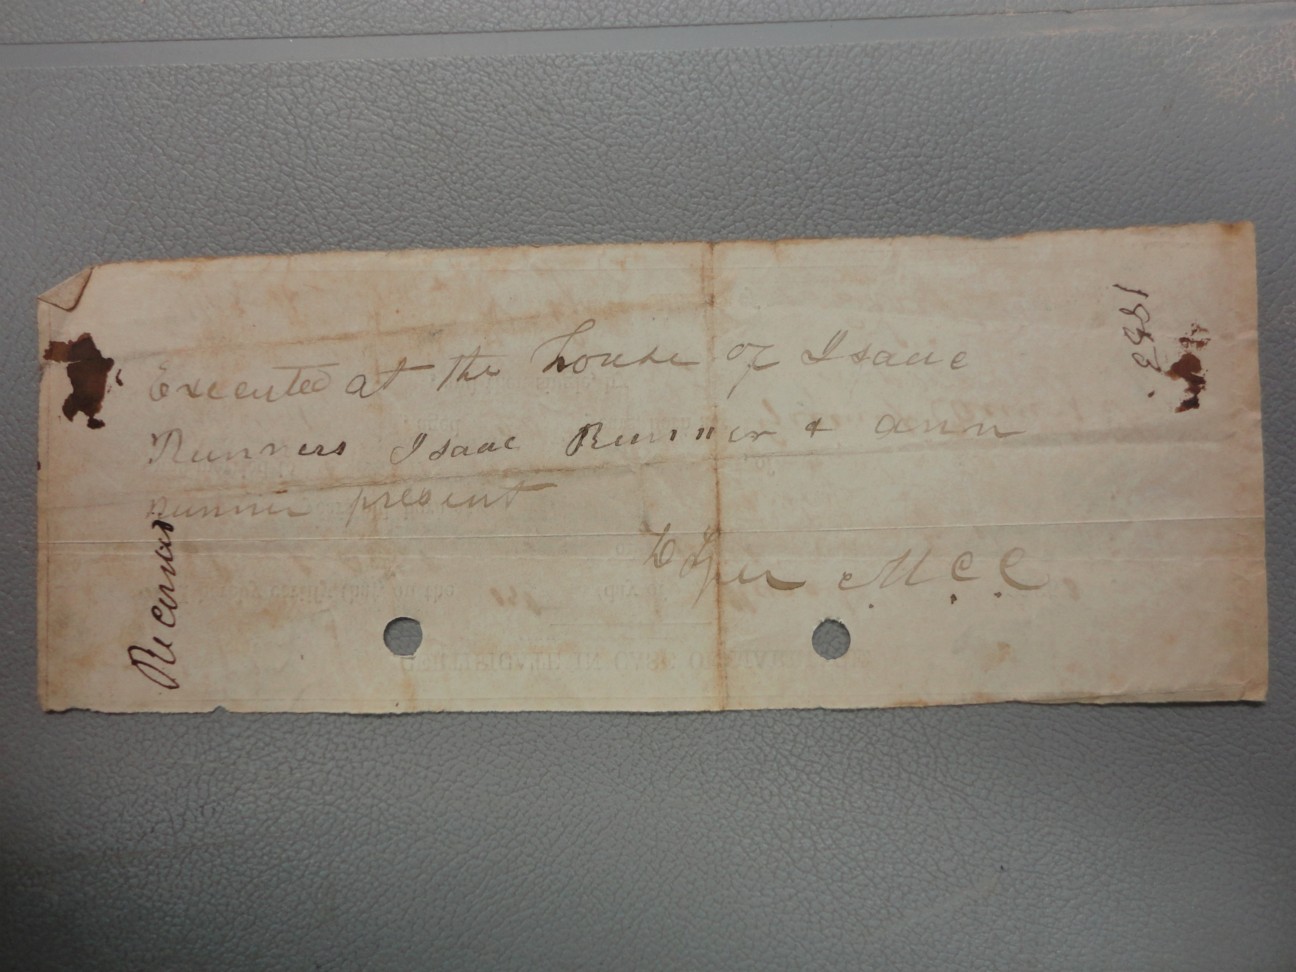 Executed at the house of Isaac
Runners Isaac Runner & Ann
runner present
M. C. C.
1853.